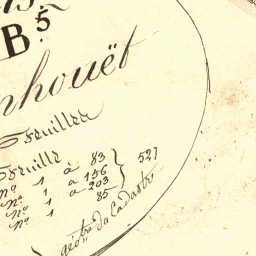 B.5
nhouët
Feuilles
Feuille
nº 1 à 83
nº 1 à 156 527
nº 1 à 203
nº 1 85
du Cadastre